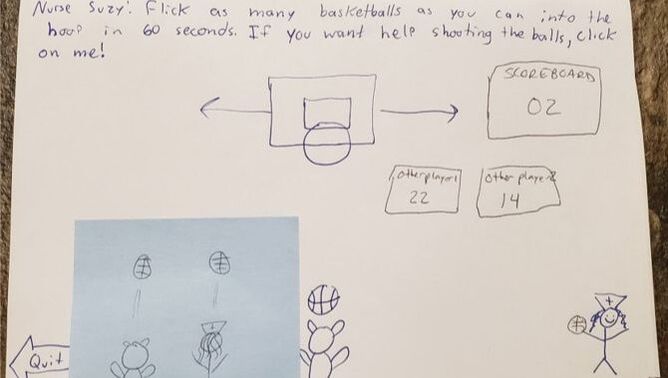 Nurse Suzy: Flick as many basketballs as you can into the
hoop in 60 seconds. If you want help shooting the balls, click
on me!
SCOREBOARD
02
Other player 1
22
Other player 2
14
Quit